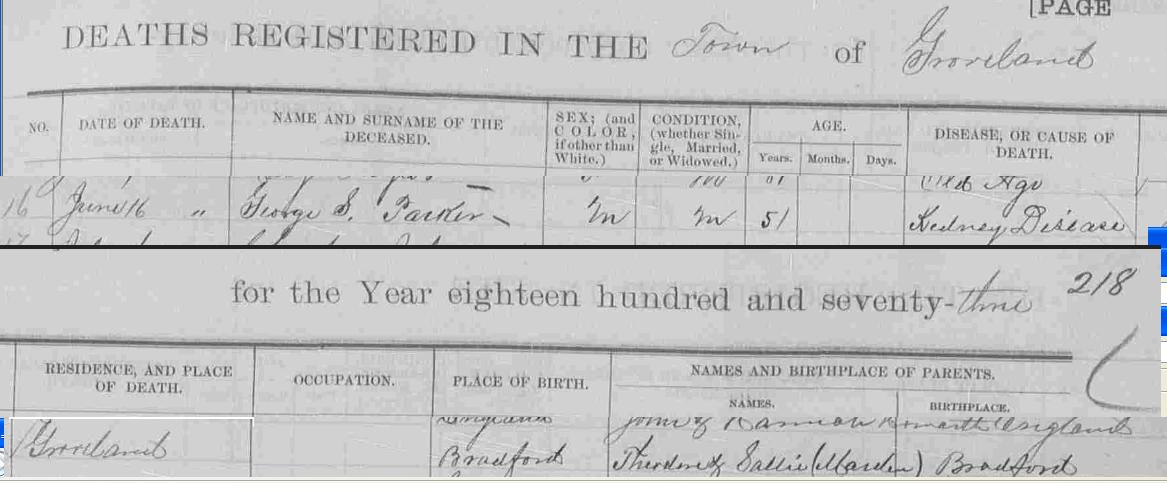 [PAGE
DEATHS REGISTERED IN THE Town of Groveland
NO.
DATE OF DEATH.
NAME AND SURNAME OF THE
DECEASED.
SEX; (and
COLOR,
if other than
White.)
CONDITION,
(whether Sin-
gle, Married,
or Widowed.)
AGE.
Years. Months. Days.
DISEASE, OR CAUSE OF
DEATH.
Old Age
16 June 16 " George S. Parker M M 51 Kedney Disease
218
for the Year eighteen hundred and seventy-three
RESIDENCE, AND PLACE
OF DEATH.
OCCUPATION.
PLACE OF BIRTH.
NAMES AND BIRTHPLACE OF PARENTS.
NAMES. BIRTHPLACE.
John & Hannah England
Groveland Bradford Theodore & Sallie (Harden) Bradford